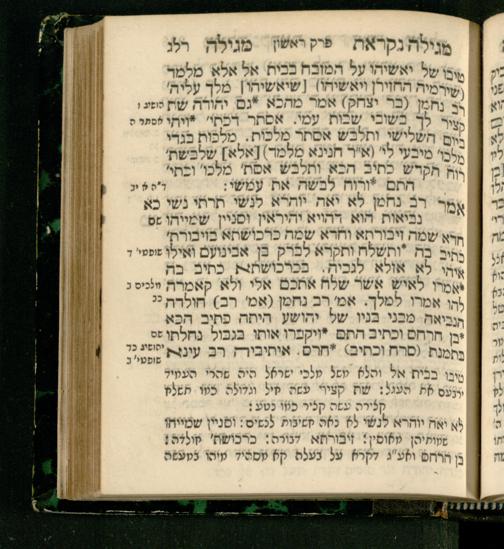 מגילה נקראת פרק ראשון מגילה רלג
טיבו של יאשיהו על המזבח בבית אל אלא מלמד
(שירמיה החזירן ויאשיהו) [שיאשיהו] מלך עליה׳
רב נחמן (בר יצחק) אמר מהכא *גם יהודה שת הושיע ו
קציר לך בשובי שבות עמי. אסתר דכתי׳ *ויהי אסתר ה
ביום השלישי ותלבש אסתר מלכות. מלכות בגדי
מלכו׳ מיבעי לי׳ (א״ר חנינא מלמד) [אלא] שלבשת׳
רוח הקדש כתיב הכא ותלבש אסת׳ מלכו׳ וכתי׳
התם *ורוח לבשה את עמשי: ד״ה א יב
אמר רב נחמן לא יאה יוהרא לנשי תרתי נשי כא
נביאות הוא דהויא יהיראין וסניין שמייהו שם
חדא שמה זיבורתא וחדא שמה כרכושתא בזיבורת׳
כתיב בה *ותשלח ותקרא לברק בן אבינועם ואילו שופטי׳ ד
איהי לא אזלא לגביה. בכרכושתא כתיב בה
*אמרו לאיש אשר שלח אתכם אלי ולא קאמרה מלכים ב
להו אמרו למלך. אמ׳ רב נחמן (אמ׳ רב) חולדה כב
הנביאה מבני בניו של יהושע היתה כתיב הכא
*בן חרחם וכתיב התם *ויקברו אותו בגבול נחלתו שם
בתמנת (סרח וכתיב) *חרס. איתיביה רב עינא יהושיע כד שופטי׳ ב
טיבו בבית אל והלא משל מלכי ישראל היה שהרי העמיד
ירבעם את העגל: שת קציר׳ עשה חיל וגדולה כמו תשלח
קלירה עשה קליר כמו נטע:
לא יאה יוהרא לנשי לא נאה חשיבות לנשים: וסניין שמייהו
שמותיהן מאוסין: זיבורתא דבורה: כרכושת׳ חולדה:
בן חרחם ואע״ג דקרא על בעלה קא מסהיד מיהו במעשה